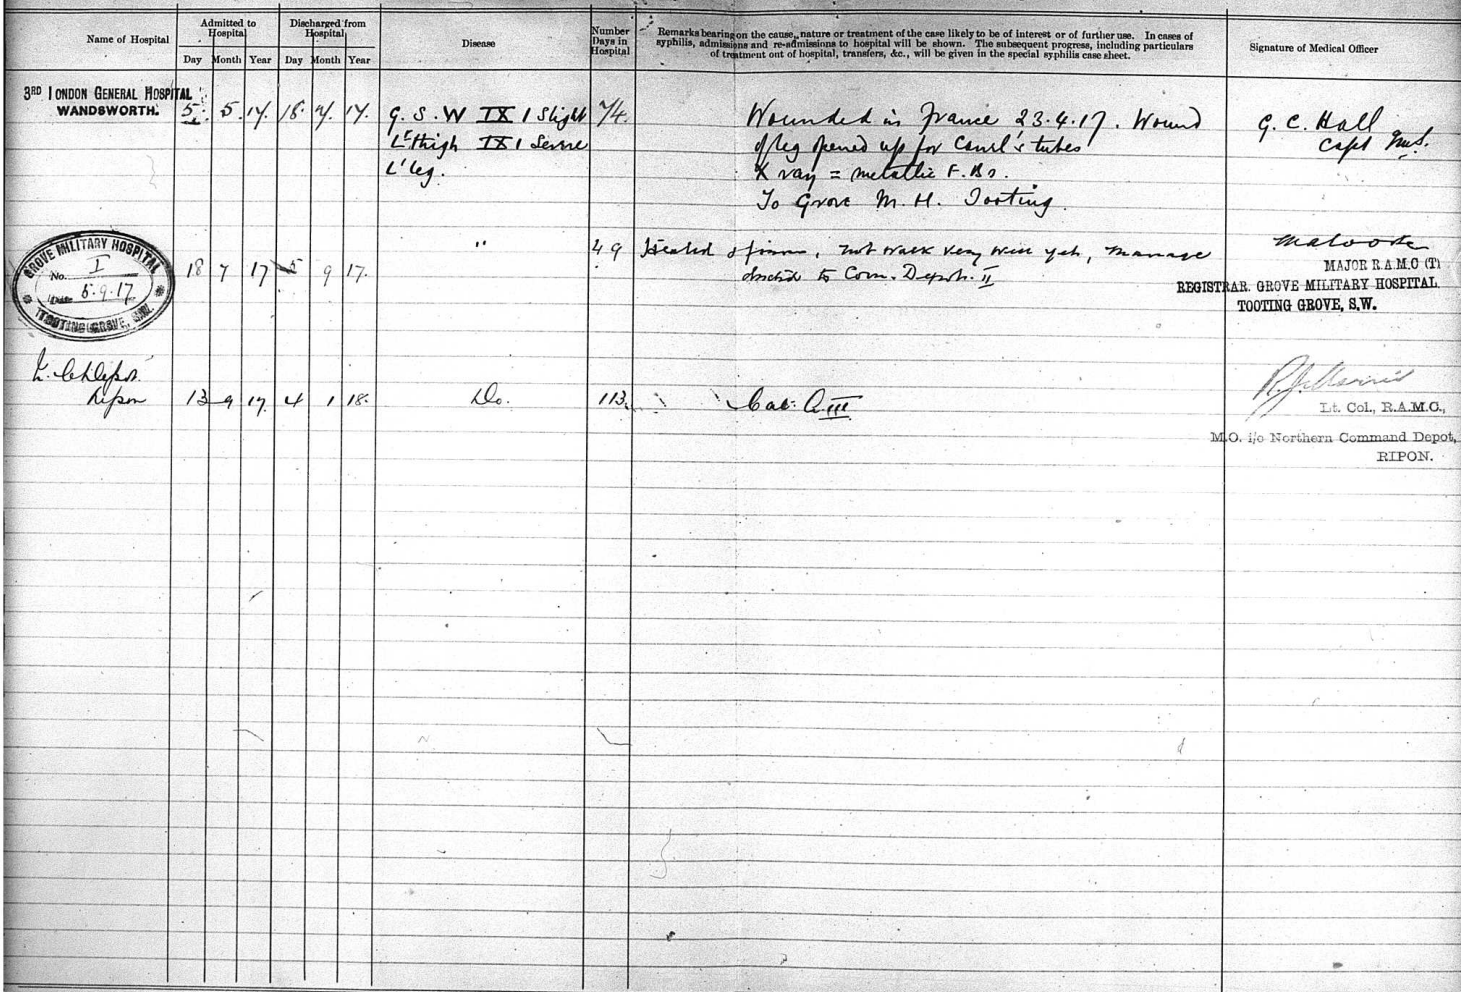 Name of Hospital
Admitted to
Hospital
Day Month Year
Discharged from
Hospital
Day Month Year
Disease
Number
Days in
Hospital
Remarks bearing on the cause, nature or treatment of the case likely to be of interest or of further use. In cases of
syphilis, admissions and re-admissions to hospital will be shown. The subsequent progress, including particulars
of treatment out of hospital, transfers, &c., will be given in the special syphilis case sheet.
Signature of Medical Officer
3RD LONDON GENERAL HOSPITAL
WANDSWORTH.
5. 5. 17. 18. 7. 17.
G. S. W IX 1 Slight
Lt thigh IX 1 Severe
Lt leg.
74.
Wounded in France 23.4.17. Wound
of leg opened up for Carrel's tubes
X ray = metallic F. Bs.
To Grove M. H. Tooting.
G. C. Hall
Capt
GROVE MILITARY HOSPITAL
No. I
Date 5.9.17
TOOTING GROVE, S.W.
18 7 17 5 9 17.
"
49
Healed & firm, not walk very well yet,
to Com. Depot. II
MAJOR R.A.M.C (T)
REGISTRAR. GROVE MILITARY HOSPITAL
TOOTING GROVE, S.W.
Ripon
13 9 17 4 1 18.
Do.
113.
Cat: A III
Lt. Col., R.A.M.C.,
M.O. i/c Northern Command Depot,
RIPON.